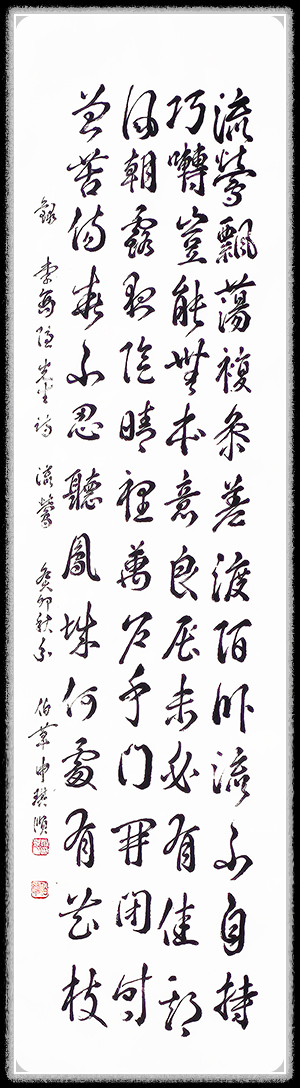 流鶯飄蕩複參差渡陌臨流不自持
巧囀豈能無本意良辰未必有佳期
風朝露夜陰晴裡萬戶千門開閉時
曾苦傷春不忍聽鳳城何處有花枝
錄 李商隱先生詩 流鶯 癸卯秋分 伯 申